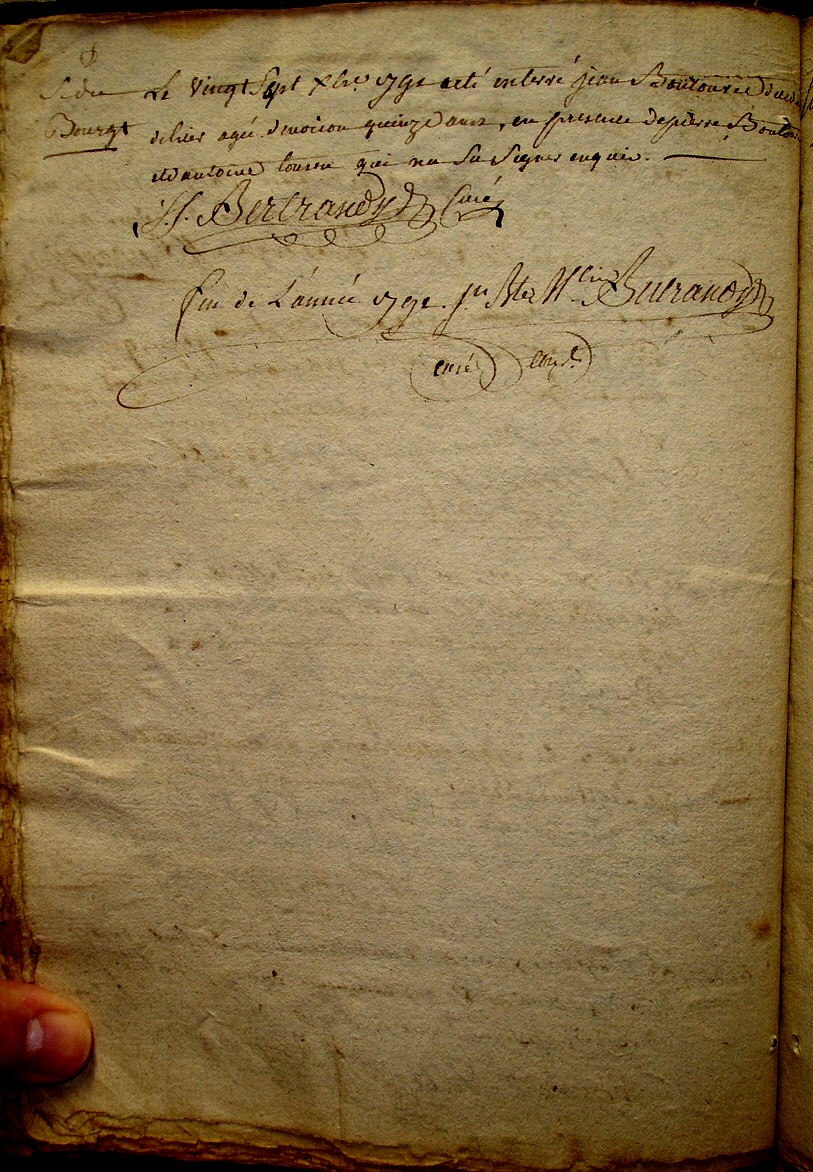 S. du
Bourgt
Le vingt Sept Xbre 1791 a eté enterré jean Boutouree decedé
d hier agé d environ quinze ans, en presence de pierre Boutou
et d antoine tourre qui na Su Signer enquis.
Bertrand Curé
fin de L'année 1791. Bertrand
curé